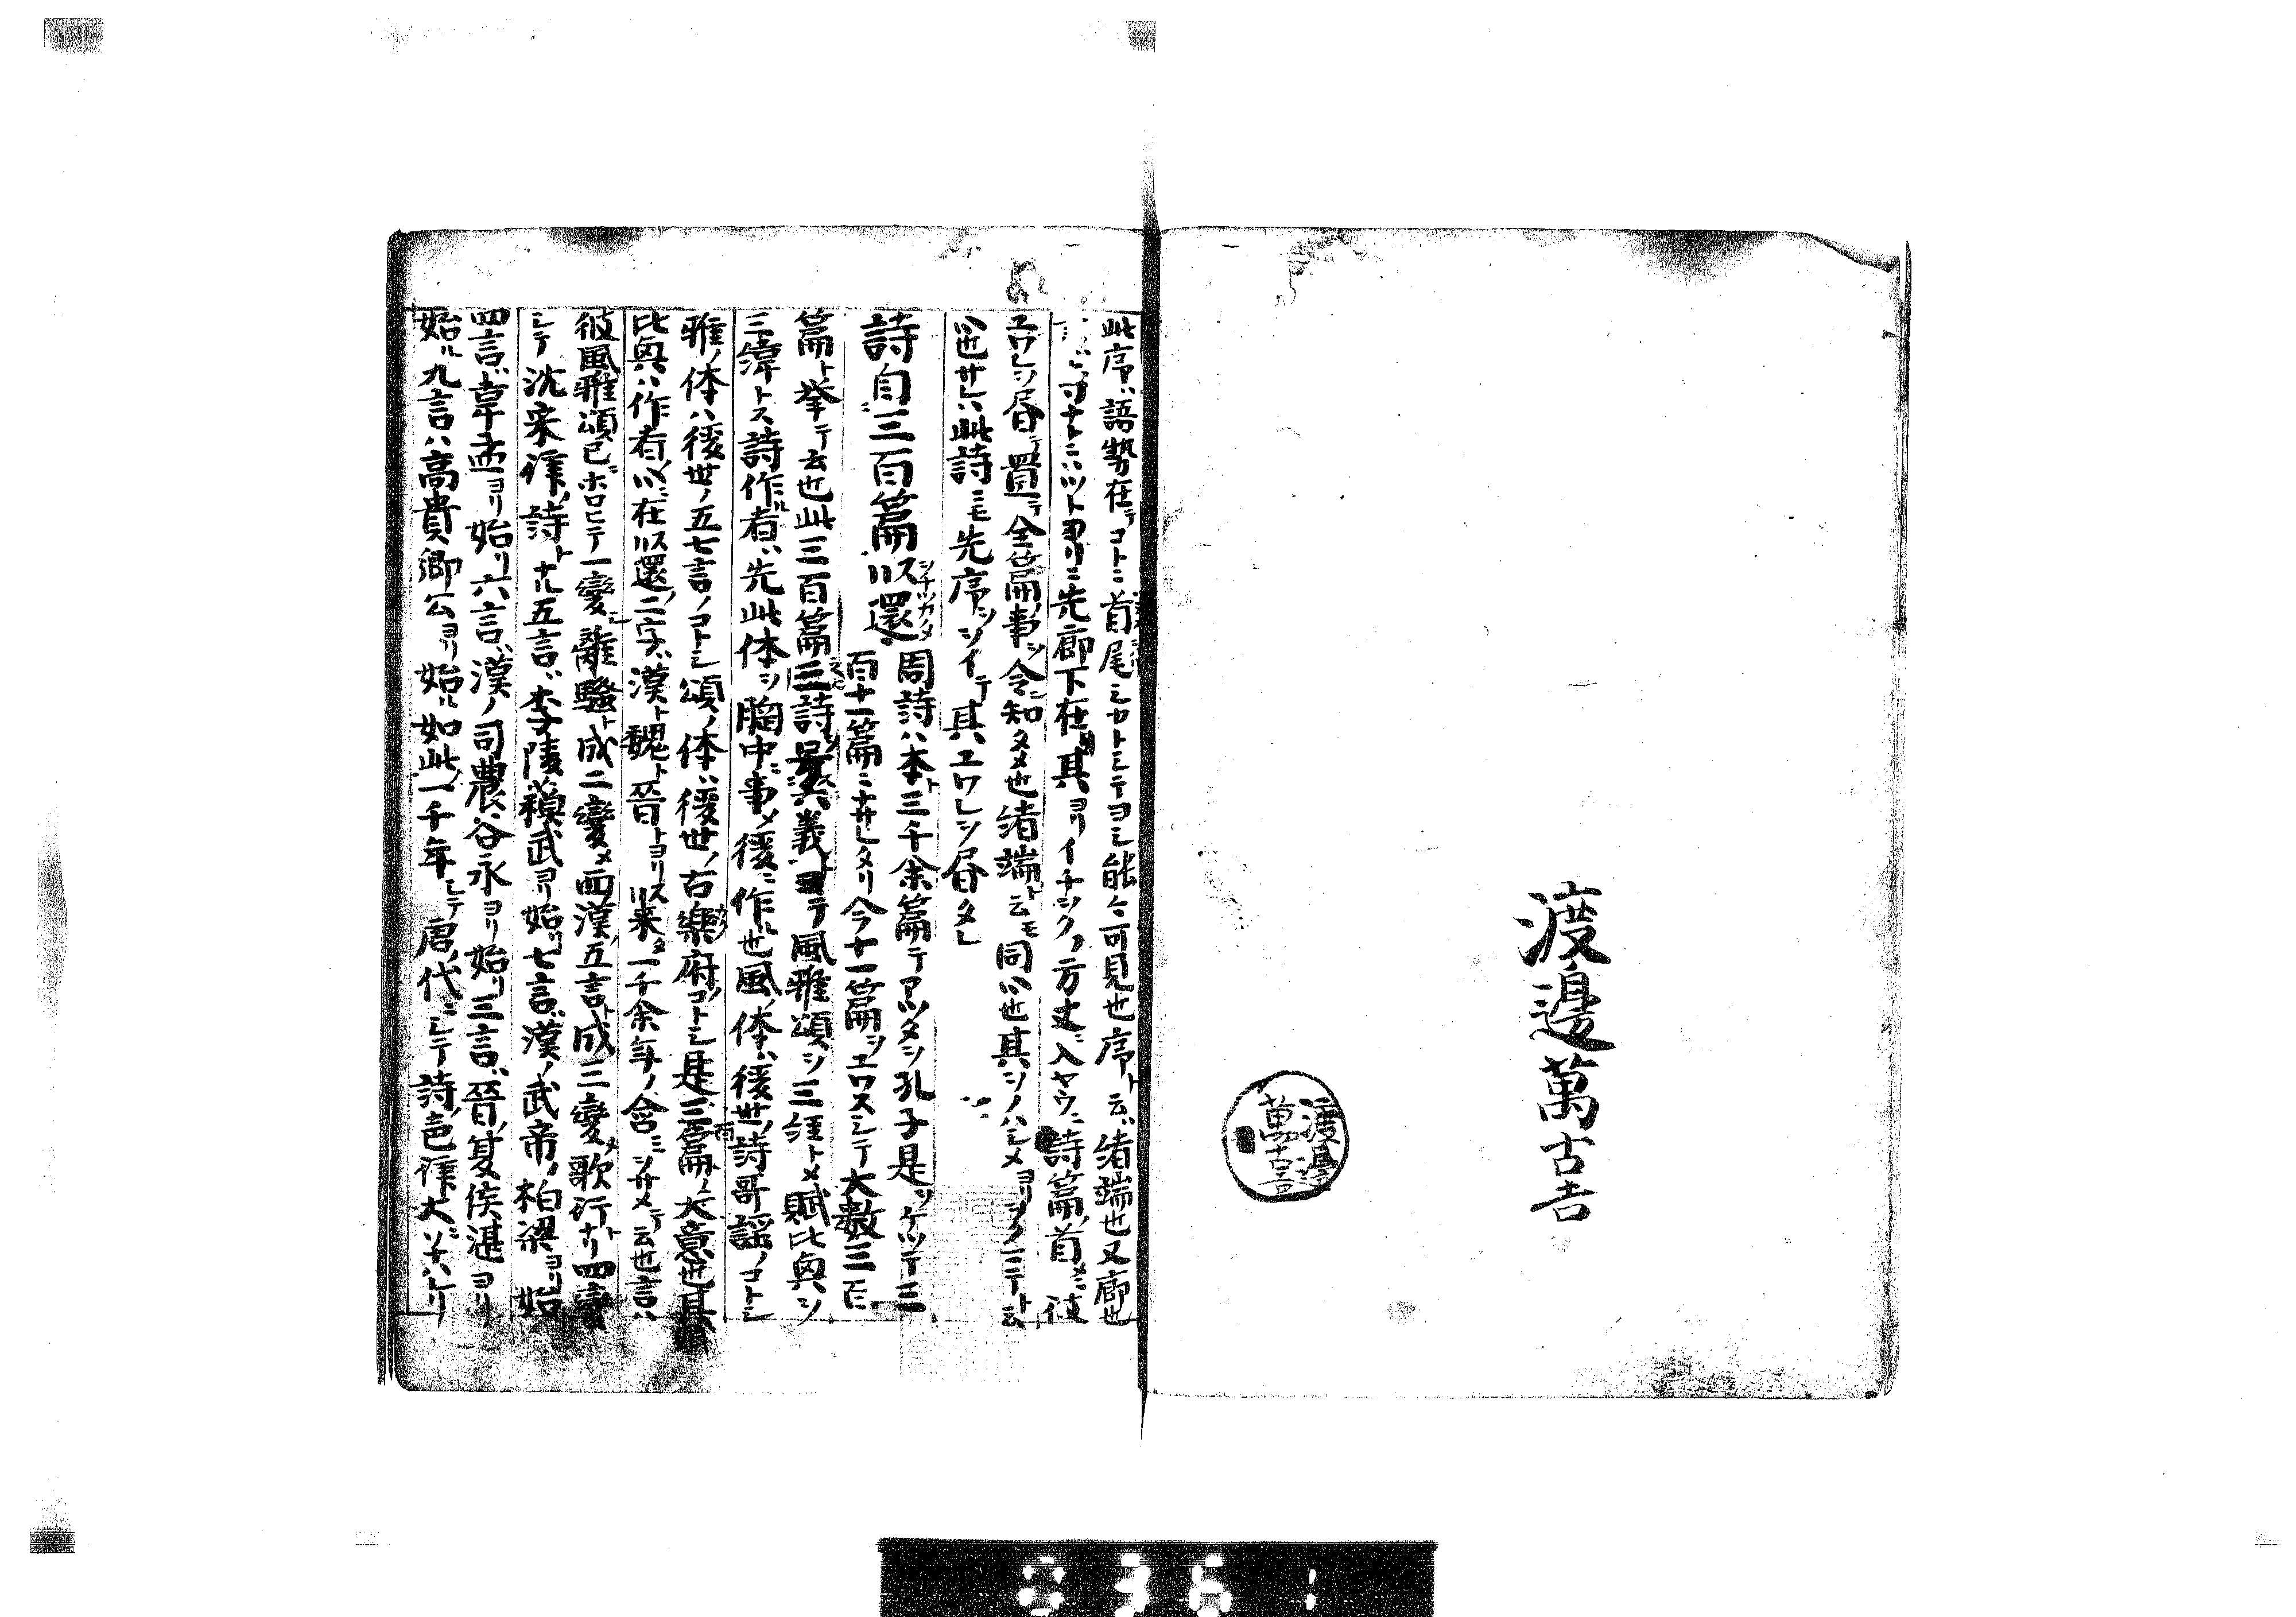 渡邊萬古吉
渡邊
萬古吉
此序ハ語勢在テコトニ首尾シカトシテヨシ能々可見也序ト云ハ緒端也又廊也
先廊下在其ヨリイチシク方丈ニ入ヤウニ詩篇首ニ彼
ユワレヲ昏テ置テ全篇事ヲ令知タメ也緒端ト云モ同ハ也其シノハシメ
ハ也サレハ此詩ニモ先序ヲシイテ其ユワレヲ昏タレ
詩自三百篇以還
周詩ハ本ト三千余篇テアツタヲ孔子是ヲケツテ三
百十一篇ニナサレタリ今十一篇ヲユワスシテ大数三百
篇ト挙テ云也此三百篇三詩六義ヨテ風雅頌ヲ三経トメ賦比興ヲ
三緯トス詩作ル者ハ先此体ヲ胸中ニ事メ後ニ作ル也風ノ体ハ後世ノ詩哥謡ノコトシ
雅ノ体ハ後世ノ五七言ノコトシ頌ノ体ハ後世ノ古樂府ノコトシ是三百篇ノ大意也其
比興ハ作者ノ以ニ在以還ノ二字ハ漢ト魏ト晉トヨリ以来タ一千余年ノ含ミヲメテ云也言ハ
彼風雅頌已ニホロヒテ一變ニ離騒ト成二變メ西漢ノ五言ト成三變メ歌行トナリ四變
シテ沈宋律ノ詩トナル五言ハ李陵蘇武ヨリ始リ七言ハ漢ノ武帝ノ柏梁ヨリ始
四言ハ韋孟ヨリ始リ六言ハ漢ノ司農谷永ヨリ始リ三言ハ晉ノ夏侯湛ヨリ
始ル九言ハ高貴卿公ヨリ始ル如此一千年ニシテ唐ノ代ニシテ詩ノ色律大ニソナハレリ
0361